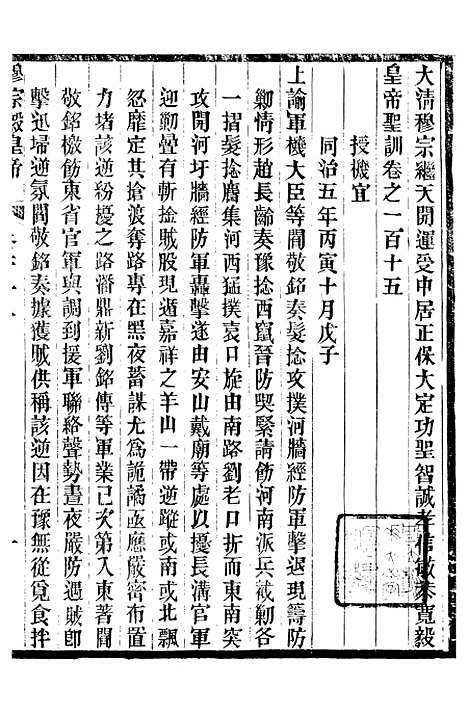 大清穆宗繼天開運受中居正保大定功聖智誠孝信敏恭寬毅
皇帝聖訓卷之一百十五
授機宜
同治五年丙寅十月戊子
上諭軍機大臣等閻敬銘奏髮捻攻撲河牆經防軍擊退現籌防
勦情形趙長齡奏豫捻西竄晉防喫緊請飭河南派兵截勦各
一摺髮捻麕集河西猛撲袁口旋由南路劉老口折而東南突
攻開河圩牆經防軍轟擊遂由安山戴廟等處以擾長溝官軍
迎勦疊有斬捻賊股現遁嘉祥之羊山一帶逆蹤或南或北飄
忽靡定其搶渡奪路專在黑夜蓄謀尤為詭譎亟應嚴密布置
力堵該逆紛擾之路潘鼎新劉銘傳等軍業已次第入東著閻
敬銘檄飭東省官軍與調到援軍聯絡聲勢晝夜嚴防遇賊卽
擊迅埽逆氛閻敬銘奏據獲賊供稱該逆因在豫無從覓食拌
穆宗毅皇帝